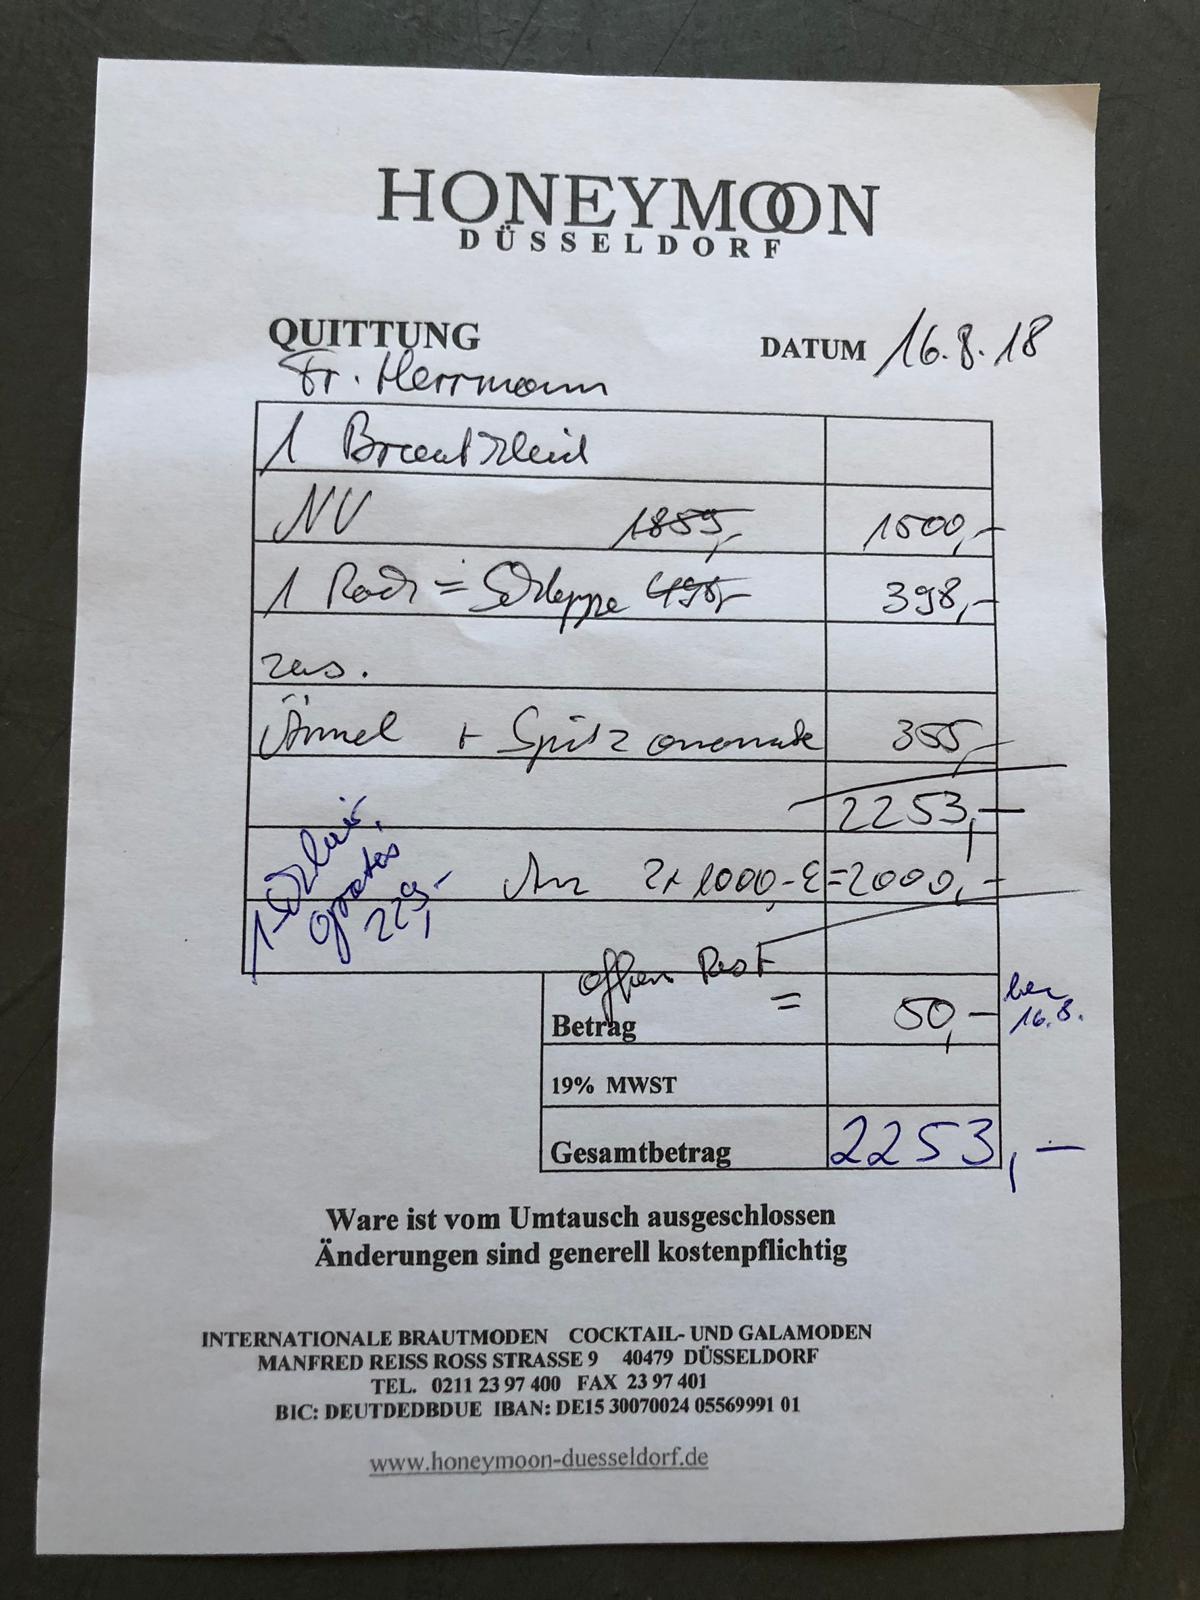 HONEYMOON
DÜSSELDORF
QUITTUNG
DATUM 16.8.18
Fr. Herrmann
1 Brautkleid
NV 1859,- 1500,-
1 Rock = Schleppe 498,- 398,-
zus.
Ärmel + Spitz 355,-
2253,-
1 Schleier
gratis
229,-
Anz 2x 1000,-€=2000,-
offen Rest
= 50,-
16.8.
Betrag
19% MWST
Gesamtbetrag 2253,-
Ware ist vom Umtausch ausgeschlossen
Änderungen sind generell kostenpflichtig
INTERNATIONALE BRAUTMODEN COCKTAIL- UND GALAMODEN
MANFRED REISS ROSS STRASSE 9 40479 DÜSSELDORF
TEL. 0211 23 97 400 FAX 23 97 401
BIC: DEUTDEDBDUE IBAN: DE15 30070024 05569991 01
www.honeymoon-duesseldorf.de